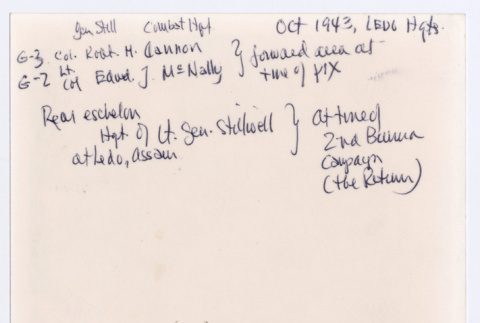 Gen Still Combat Hqt Oct 1943, LEDO Hqts.
G-3, Col. Robt. H. Cannon } forward area at
G-2 Lt Col Edwd. J. McNally time of pix
Rear eschelon } at time of
Hqt of Lt. Gen. Stillwell 2nd Burma
at Ledo, Assam Campaign
(the Return)